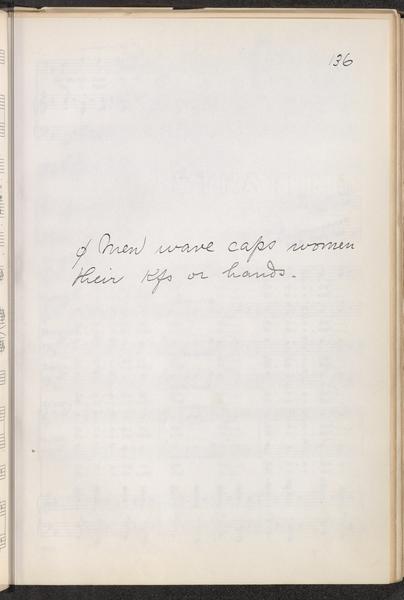 136
ø Men wave caps women
their Kfs or hands.